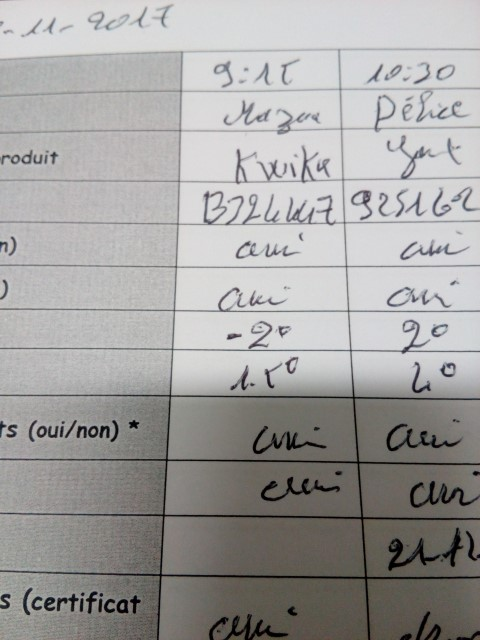 -11-2017
9:15 10:30
Délice
roduit Kwika
B324447 925162
n) oui oui
) oui oui
-2° 2°
1.5° 4°
ts (oui/non) * oui oui
oui oui
21-12
s (certificat oui